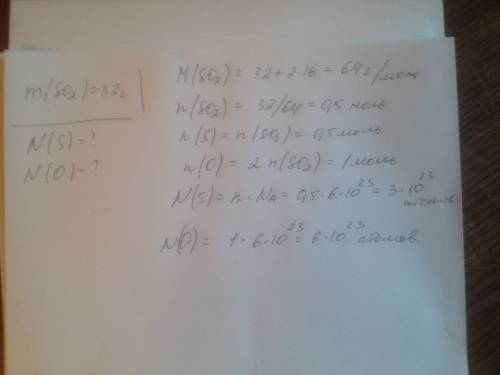 m(SO₂)=32г
N(S)-?
N(O)-?
M(SO₂) = 32+2·16 = 64 г/моль
n(SO₂) = 32/64 = 0,5 моль
n(S) = n(SO₂) = 0,5 моль
n(O) = 2 n(SO₂) = 1 моль
N(S) = n · Nₐ = 0,5·6·10²³ = 3·10²³
атомов
N(O) = 1·6·10²³ = 6·10²³ атомов